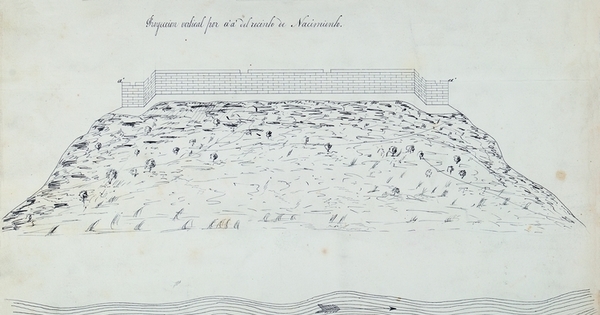 Proyeccion vertical por a'a'' del recinto de Nacimiento.